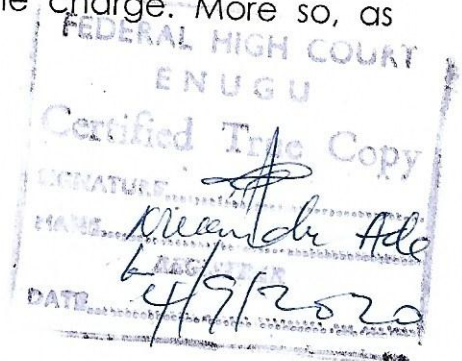 e charge. More so, as
FEDERAL HIGH COURT
ENUGU
Certified True Copy
SIGNATURE
NAME
Ade
REGISTRAR
DATE 4/9/2020